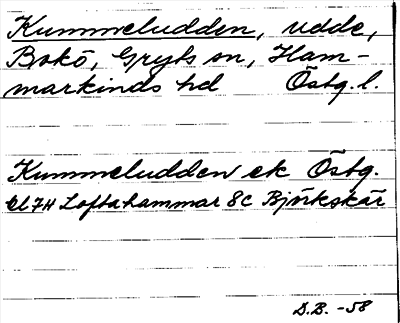 Kummeludden, udde,
Bokö, Gryts sn, Ham-
markinds hd Östg. l.
Kummeludden ek Östg.
Bl 7H Loftahammar 8c Björkskär
D.B. -58